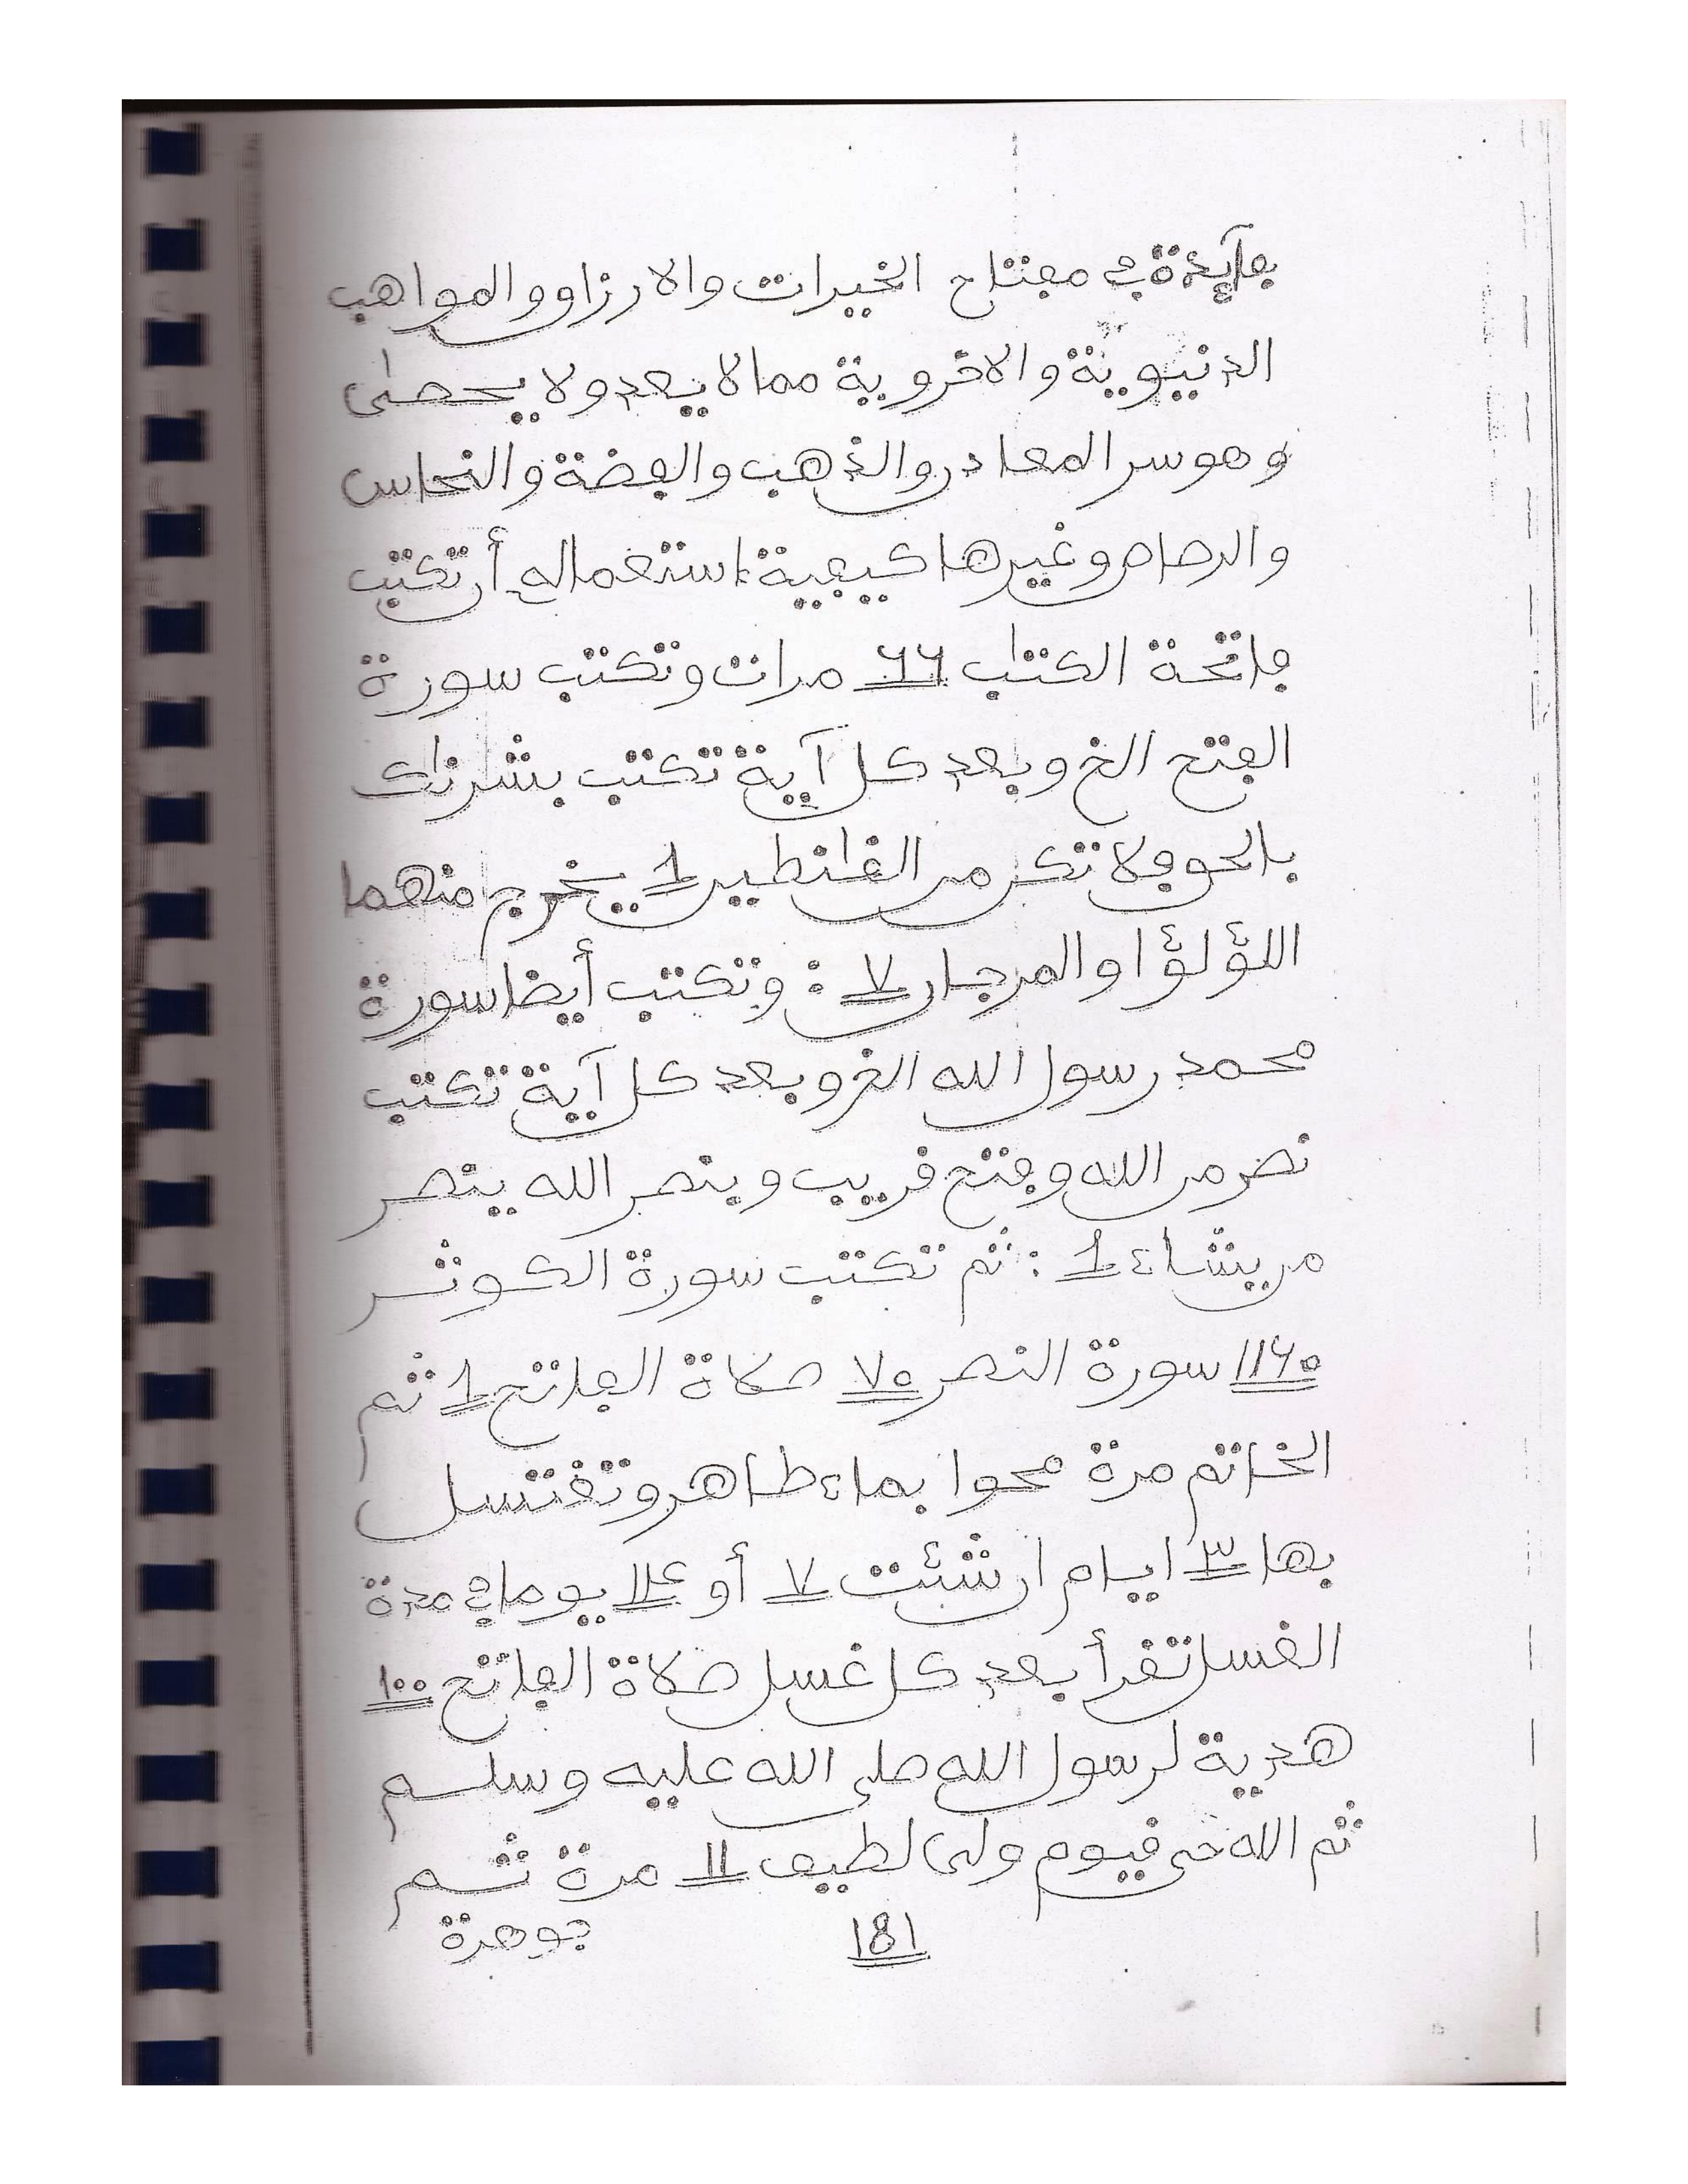 فآئدة في مفتاح الخيرات والارزاق والمواهب
الدنيوية والاخروية مما لا يعد ولا يحصى
وهو سر المعادن والذهب والفضة والنحاس
والرصاص وغيرها كيفية استعماله أن تكتب
فاتحة الكتاب ٦٦ مرات وتكتب سورة
الفتح الخ وبعد كل آية تكتب بشرناك
بالحق فلا تكن من القانطين 1 يخرج منهما
اللؤلؤا والمرجان ٧ : وتكتب أيضا سورة
محمد رسول الله الخ وبعد كل آية تكتب
نصر من الله وفتح قريب وينصر الله ينصر
من يشاء 1 : ثم تكتب سورة الكوثر
١١٦٥ سورة النصر ٧٥ صلاة الفاتح 1 ثم
الخاتم مرة محوا بماء طاهر وتغتسل
بها ٣ ايام ان شئت ٧ أو ١٤ يوما في مدة
الغسل تقرأ بعد كل غسل صلاة الفاتح ١٠٠
هدية لرسول الله صلى الله عليه وسلم
ثم الله حي قيوم ولى لطيف 11 مرة ثم
181 جوهرة